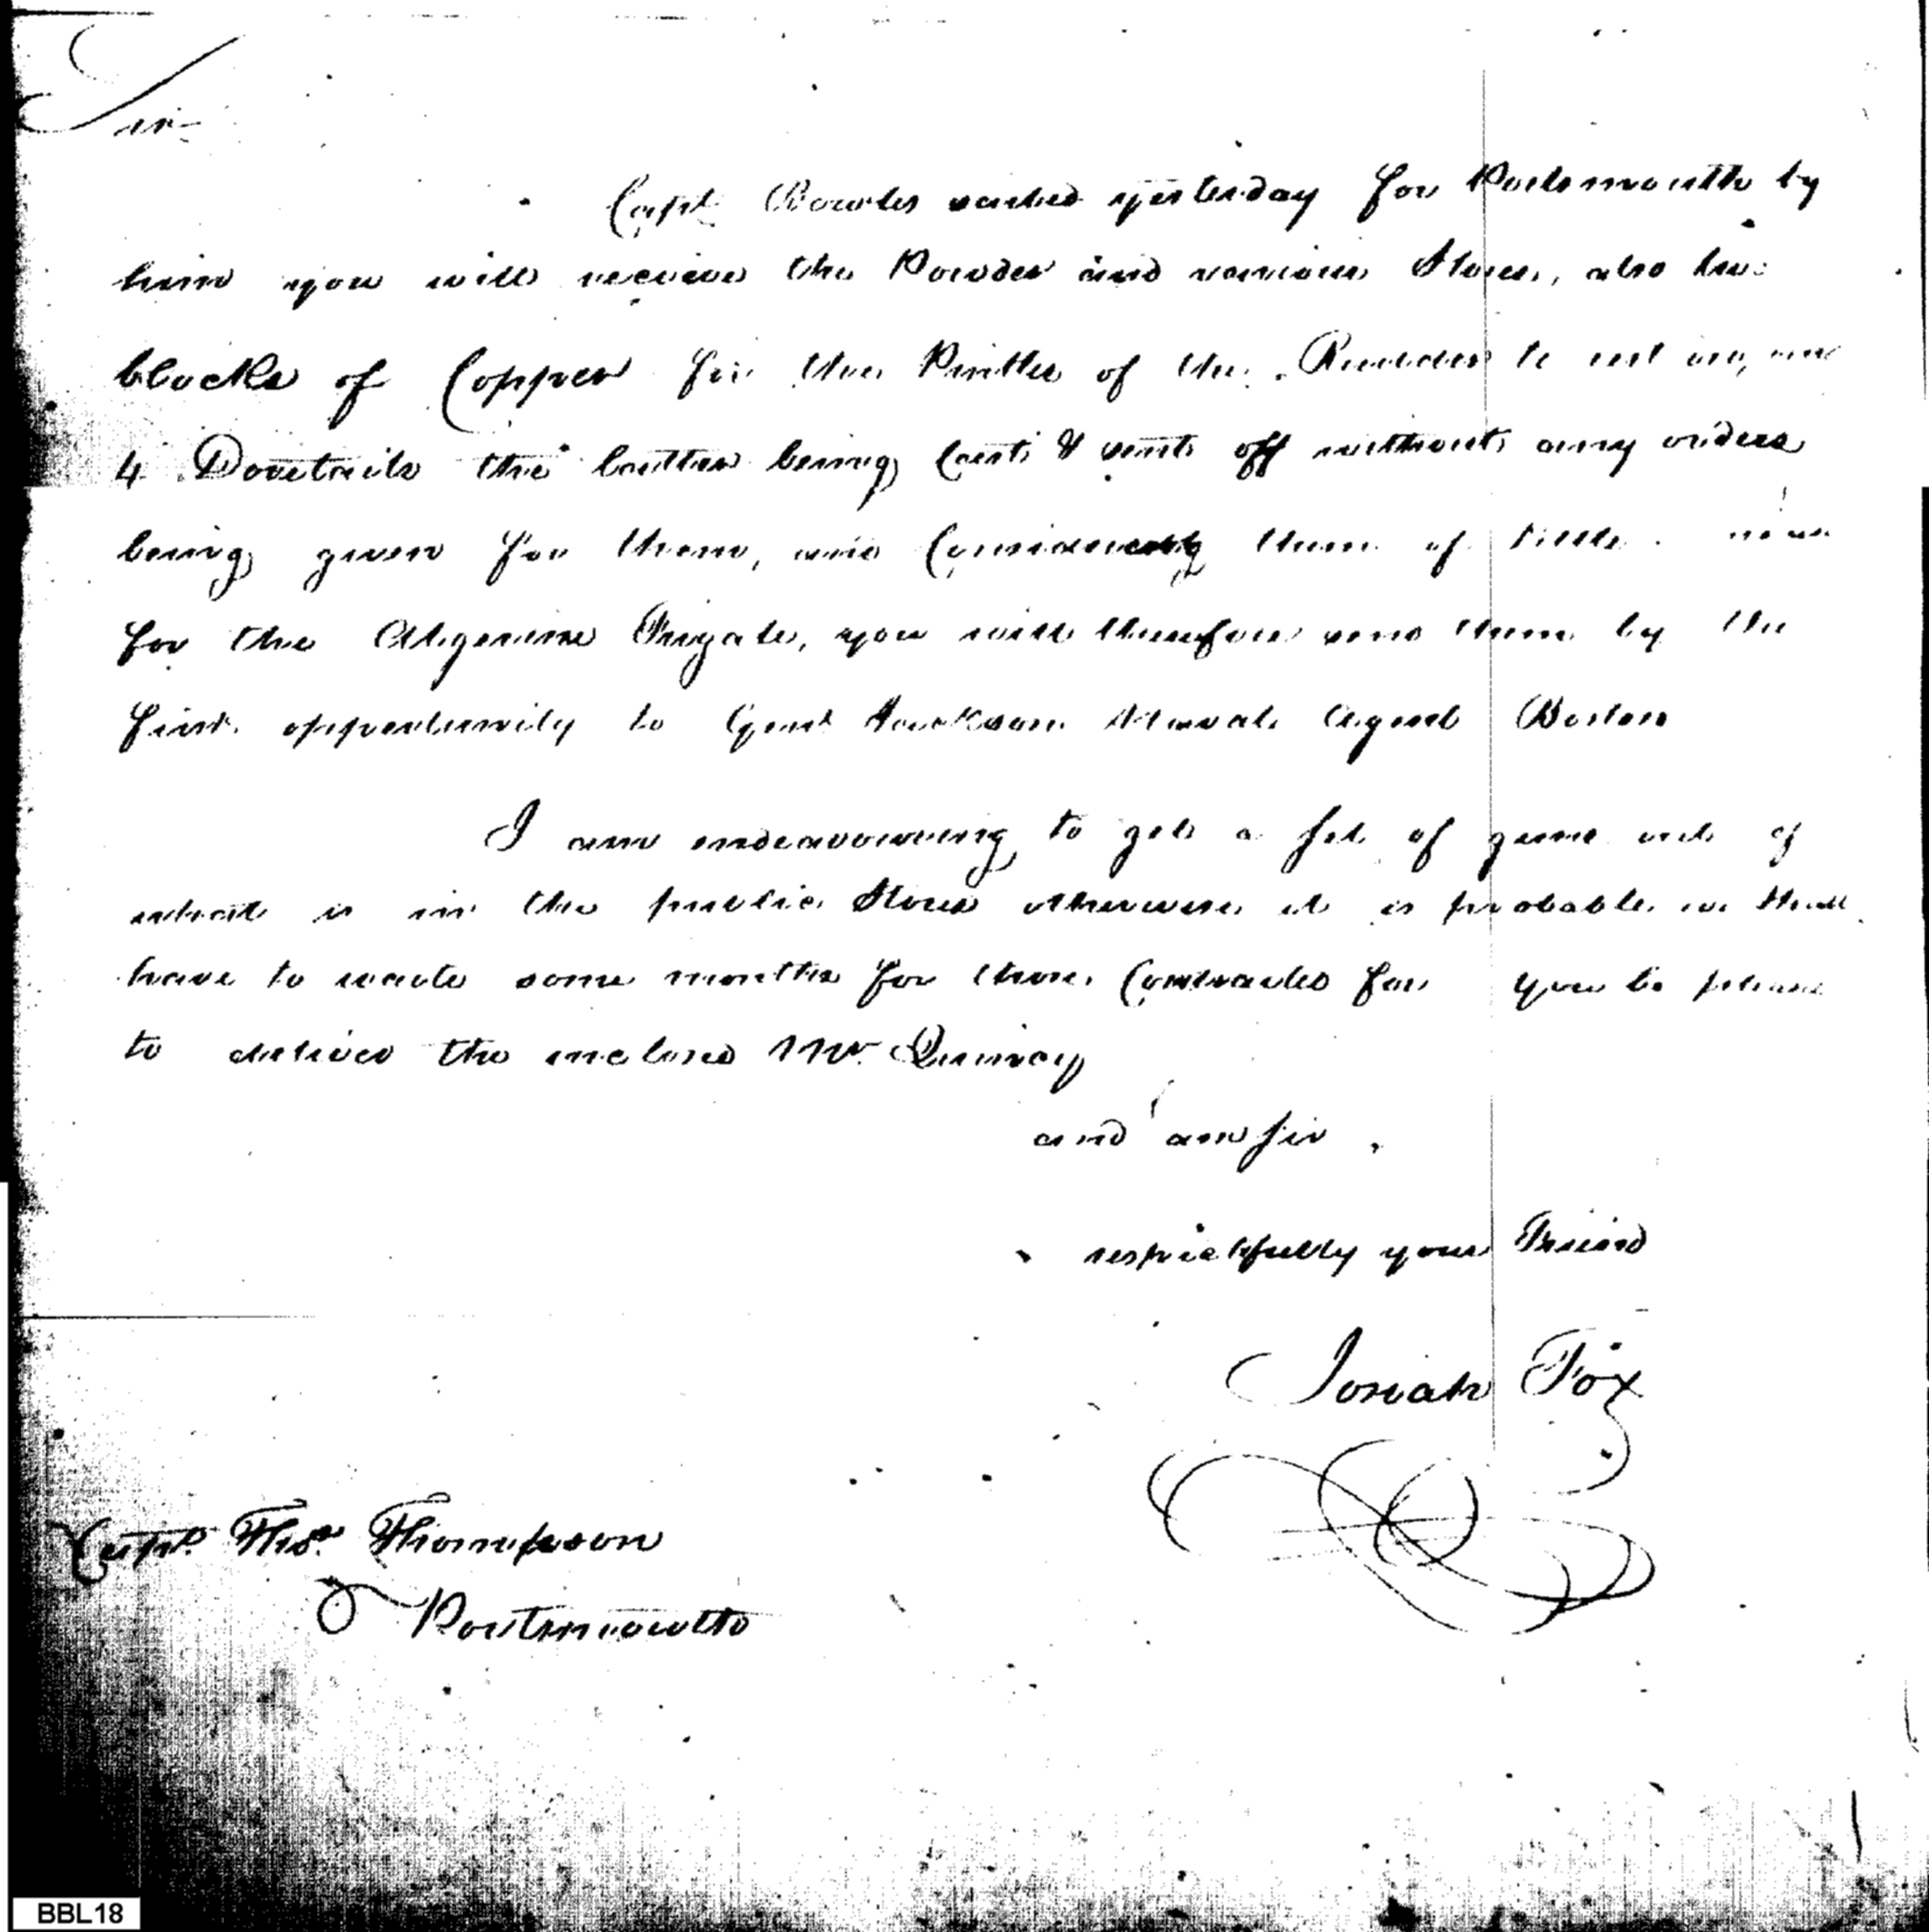 Sir
Capt Bowles sailed yesterday for Portsmouth by
him you will receive the Powder and various Stores, also two
blocks of Copper for the Pintles of the Rudder to rest on, and
4 Dovetails the latter being Cast & sent off without any orders
being given for them, and them of little
for the Algerine Frigate, you will therefore send them by the
first opportunity to Genl Jackson Naval Agent Boston
I am endeavouring to get a set of guns out of
what is in the public Stores otherwise it is probable we shall
have to waite some months for those Contracted for you be please
to deliver the inclosed Mr. Quincy
and am sir
respectfully your Friend
Josiah Fox
Capt. Thos. Thompson
Portsmouth
BBL18